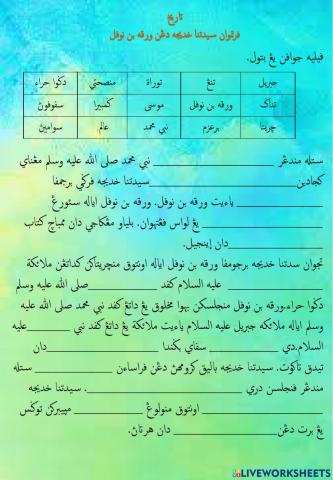 تاريخ
فرتموان سيدتنا خديجه دڠن ورقه بن نوفل
فيليه جوافن يڠ بتول.
جبريل تنڠ توراة منصحتي دكوا حراء
تناݢ ورقه بن نوفل موسى كسيرا سفوفون
چريتا برعزم نبي محمد عالم سوامين
ستله مندڠر ____ نبي محمد صلى الله عليه وسلم مڠناي
كجادين ____ سيدتنا خديجه فرݢي برجمفا
____ ياءيت ورقه بن نوفل. ورقه بن نوفل اياله سئورڠ
____ يڠ لواس فڠتهوان. بلياو مڠكاجي دان ممباچ كتاب
____ دان إينجيل.
تجوان سدتنا خديجه برجومفا ورقه بن نوفل اياله اونتوق منچريتاكن كداتڠن ملائكة
____ عليه السلام كفد ____ صلى الله عليه وسلم
دكوا حراء.ورقه بن نوفل منجلسكن بهوا مخلوق يڠ داتڠ كفد نبي محمد صلى الله عليه
وسلم اياله ملائكه جبريل عليه السلام ياءيت ملائكة يڠ داتڠ كفد نبي ____ عليه
السلام.دي ____ سفاي بݢندا ____ دان
تيدق تاكوت. سيدتنا خديجه باليق كرومهن دڠن فراساءن ____ ستله
مندڠر فنجلسن دري ____. سيدتنا خديجه
____ اونتوق منولوڠ ____ ميبيركن توݢس
يڠ برت دڠن ____ دان هرتاڽ.
LIVEWORKSHEETS